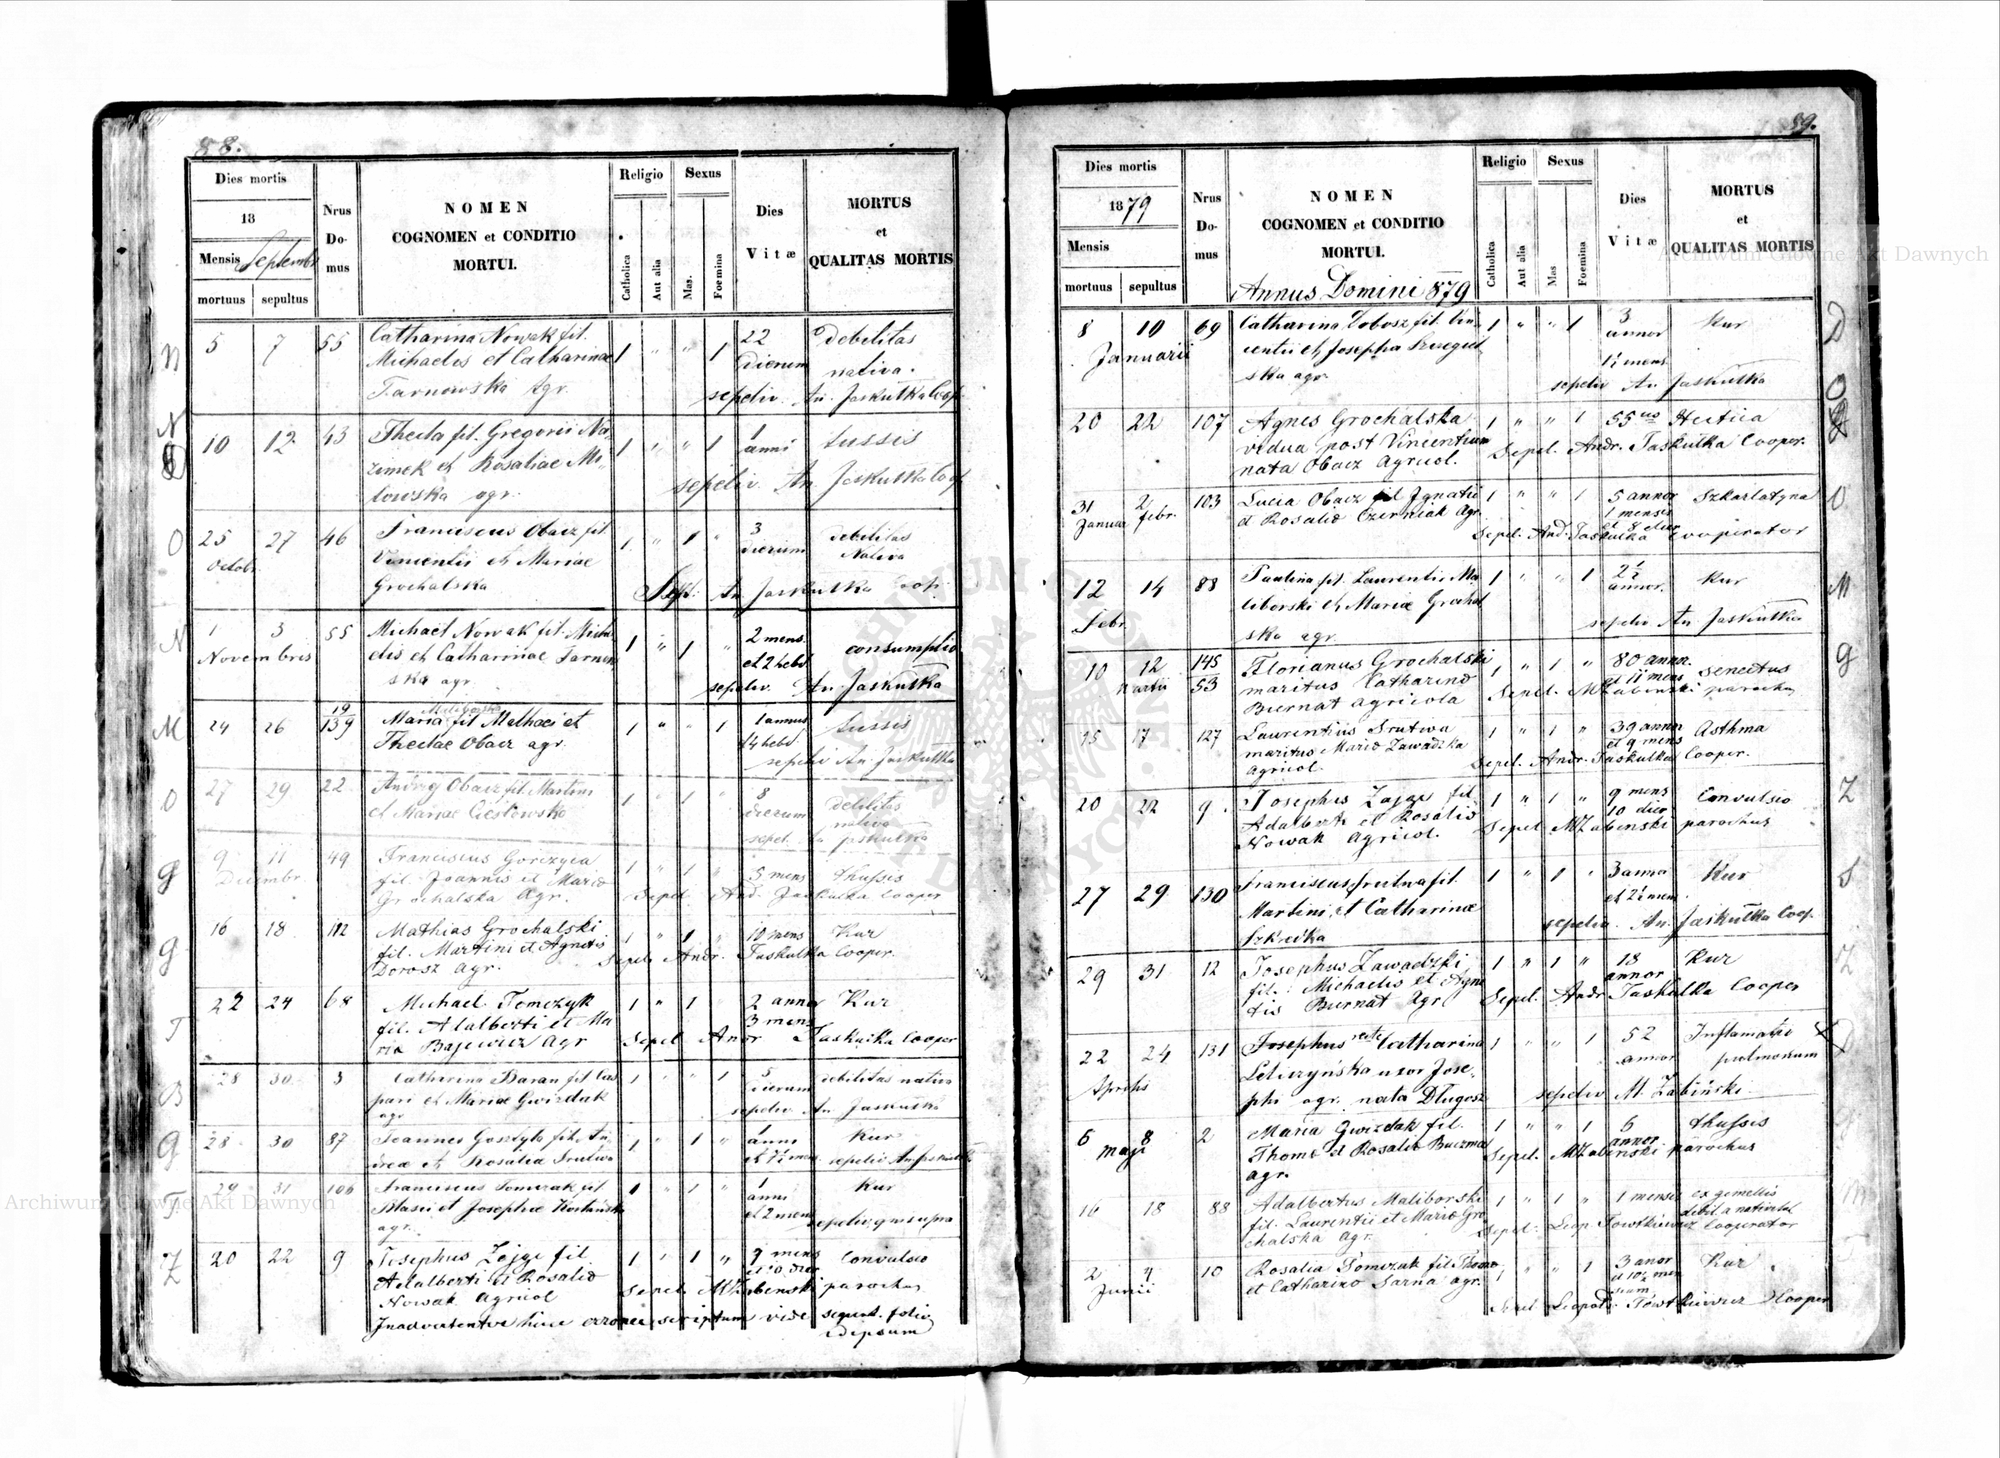 88.
Dies mortis
18
Mensis Septembr
mortuus sepultus
Nrus Do- mus
NOMEN
COGNOMEN et CONDITIO
MORTUI.
Religio
Catholica
Aut alia
Sexus
Mas.
Foemina
Dies
Vitæ
MORTUS
et
QUALITAS MORTIS
N 5 7 55 Catharina Nowak fil. 1 " " 1 22 debilitas
Michaelis et Catharinae dierum nativa.
Tarnowska Agr. sepeliv. An. Jaskulka Coop.
N 10 12 43 Thecla fil. Gregorii Na- 1 " " 1 1 tussis
zimek et Rosaliae Mi- anni
lowska agr. sepeliv. An Jaskulka Coop
O 25 27 46 Franciscus Obacz fil 1 " 1 " 3 debilitas
Octobr. Vincentii et Mariae dierum Nativa
Grochalska Sept. An. Jaskulka Coop.
N 1 3 55 Michael Nowak fil. Micha 1 " 1 " 2 mens. consumptio
Novembris elis et Catharinae Tarnow et 2 hebd
ska agr. sepeliv. An. Jaskulka
M 24 26 19 139 Maria fil Mathaei et 1 " " 1 1 annus tussis
Theclae Obacz agr. 14 hebd
sepeliv An. Jaskulka
O 27 29 22 Andreas Obacz fil. Martini 1 " 1 " 8 debilitas
et Mariae Cieslowska dierum nativa
sepel. An Jaskulka
G 9 11 49 Franciscus Gorczyca 1 " 1 " 5 mens thussis
Decembr. fil. Joannis et Maria
Grochalska Agr. Sepel. And. Jaskulka Cooper
G 16 18 112 Mathias Grochalski 1 " 1 " 10 mens Kur
fil. Martini et Agnetis
Dorosz Agr. Sepel. Andr. Jaskulka Cooper.
T 22 24 68 Michael Tomczyk 1 " 1 2 annor Kur
fil. Adalberti et Ma 3 mens
ria Bajewicz Agr Sepel Andr Jaskulka Cooper
B 28 30 3 Catherina Baran fil Cas 1 " " 1 5 debilitas nativa
pari et Mariae Gwizdak dierum
agr sepeliv An. Jaskulka
G 28 30 87 Joannes Gostyla fil. An 1 " 1 " 1 Kur
dreae et Rosalia Srutwa anni sepeliv An. Jaskulka
T 29 31 106 Franciscus Tomczak fil 1 " 1 " 1 Kur
Blasii et Josephae anni
agr. et 2 mens sepeliv. q m supra
Z 20 22 9 Josephus Zajge fil 1 " 1 " 9 mens Convulsio
Adalberti et Rosalia et 10 dier
Nowak Agricol Sepel. M Zabinski parochus
Inadvertenter hicce erronee scriptum vide sequent. folio
idipsum
89.
Dies mortis
1879
Mensis
mortuus sepultus
Nrus Do- mus
NOMEN
COGNOMEN et CONDITIO
MORTUI.
Annus Domini 879
Religio
Catholica
Aut alia
Sexus
Mas
Foemina
Dies
Vitæ
MORTUS
et
QUALITAS MORTIS
8 10 69 Catharina Dobosz fil. Vin 1 " " 1 3 Kur D
Januarii centii et Josepha annor
ska agr. 1½ mens
sepeliv An. Jaskulka
20 22 107 Agnes Grochalska 1 " " 1 55 Hectica O
vidua post Vincentium
nata Obacz Agricol. Sepel. Andr. Jaskulka Cooper.
31 2 103 Lucia Obacz fil Ignatii 1 " " 1 5 annor Szkarlatyna O
Januar febr. et Rosalia Czerniak Agr. 1 mensis
et 8 dier
Sepel. And. Jaskulka Cooperator
12 14 88 Paulina fil. Laurentii Ma 1 " " 1 2½ Kur M
Febr. liborski et Mariae Grochal annor.
ska agr. sepeliv An. Jaskulka
10 12 145 53 Florianus Grochalski 1 " 1 " 80 annor. senectus G
Martii maritus Catharina et 11 mens
Biernat agricola Sepel. M Zabinski parochus
15 17 127 Laurentius Srutwa 1 " 1 " 39 annor Asthma
maritus Maria Zawadzka et 9 mens
Agricol. Sepel. Andr. Jaskulka Cooper.
20 22 9. Josephus Zajge fil 1 " 1 " 9 mens Convulsio Z
Adalberti et Rosalia 10 dier
Nowak Agricol. Sepel M Zabinski parochus
27 29 130 Franciscus Srutwa fil. 1 " 1 " 3 anno Kur S
Martini et Catharinae et 2½ mens.
sepeliv. An. Jaskulka Coop.
29 31 12 Josephus Zawadzki 1 " 1 " 18 Kur Z
fil. Michaelis et Agne annor
tis Biernat Agr Sepel. Andr Jaskulka Cooper
22 24 131 Josephus recte Catharina 1 " " 1 52 Inflamatio
Aprilis Letuszyńska uxor Jose- annor pulmonum
phi agr. nata Dlugosz sepeliv M. Zabiński
6 8 2 Maria Gwizdak fil. 1 " " 1 6 thussis G
Maji Thoma et Rosalia Buczma annor
agr. Sepel. M Zabinski parochus
16 18 88 Adalbertus Maliborski 1 " 1 " 1 mensis ex gemellis M
fil. Laurentii et Maria Gro debil a nativitat
chalska Agr. Sepel. Leop Towtkiewicz Cooperator
2 4 10 Rosalia Tomczak fil Thoma 1 " " 1 3 anor Kur T
Junii et Catharina Sarna agr. et 10½ men
Sepel Leopold Towtkiewicz Cooper
Archiwum Główne Akt Dawnych
Archiwum Główne Akt Dawnych